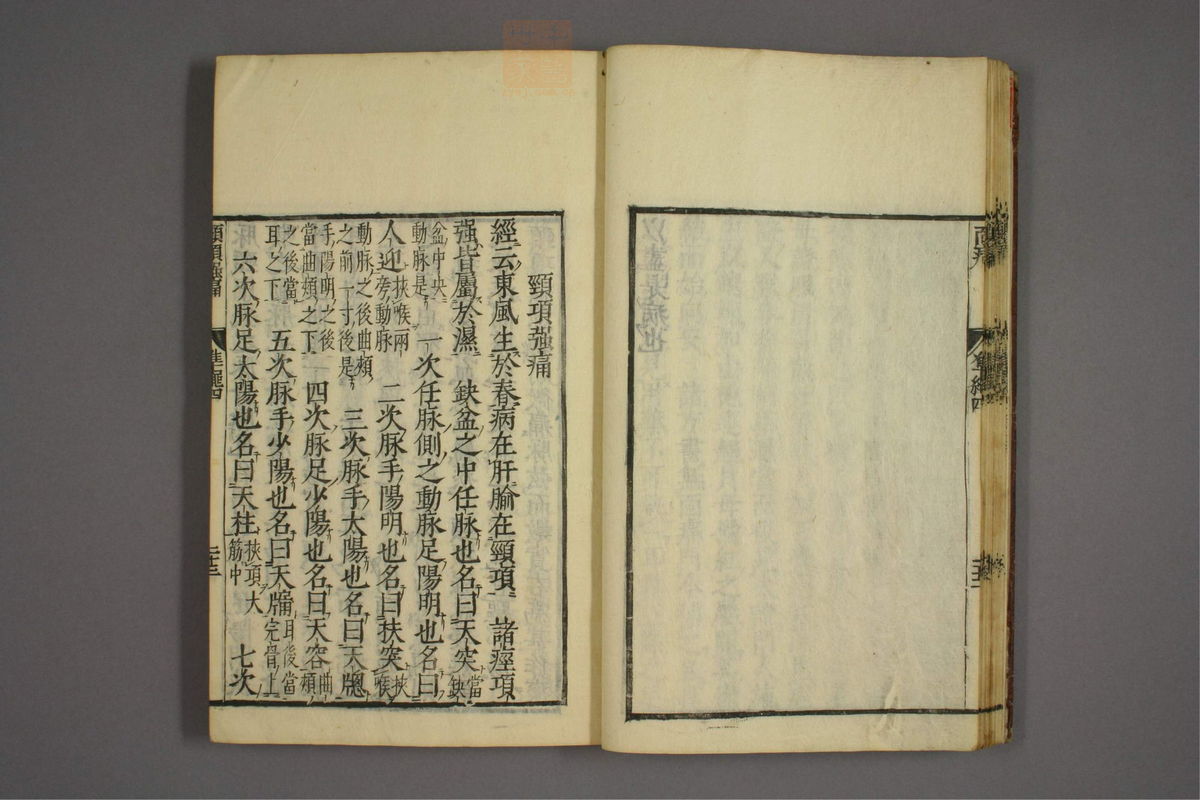 以盡是病也
頸項强痛
經云東風生於春病在肝腧在頸項　諸痙項
强皆屬於濕　缺盆之中任脉也名曰天突當缺
盆中央動脉是　一次任脉側之動脉足陽明也名曰
人迎挾喉兩旁動脉　二次脉手陽明也名曰扶突挾喉
動脉之後曲頰之前一寸後是　三次脉手太陽也名曰天牕
手陽明之後當曲頰之下　四次脉足少陽也名曰天容曲頰
之後當耳之下　五次脉手少陽也名曰天牖耳後當完骨上
六次脉足太陽也名曰天柱挾項大筋中　七次
頸項强痛　準繩四　二十三